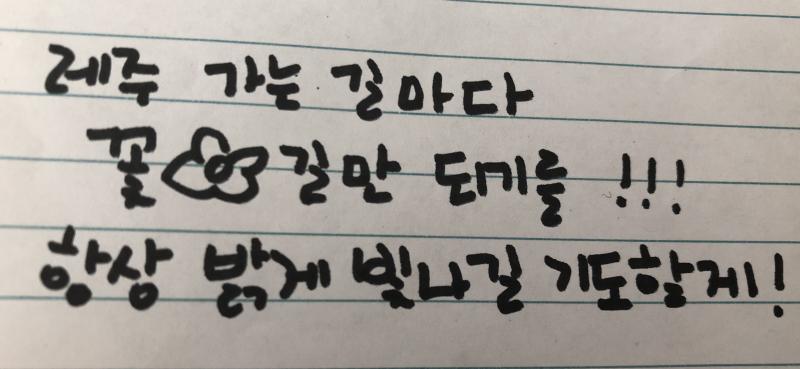 레주 가는 길마다
꽃길만 되기를 !!!
항상 밝게 빛나길 기도할게!